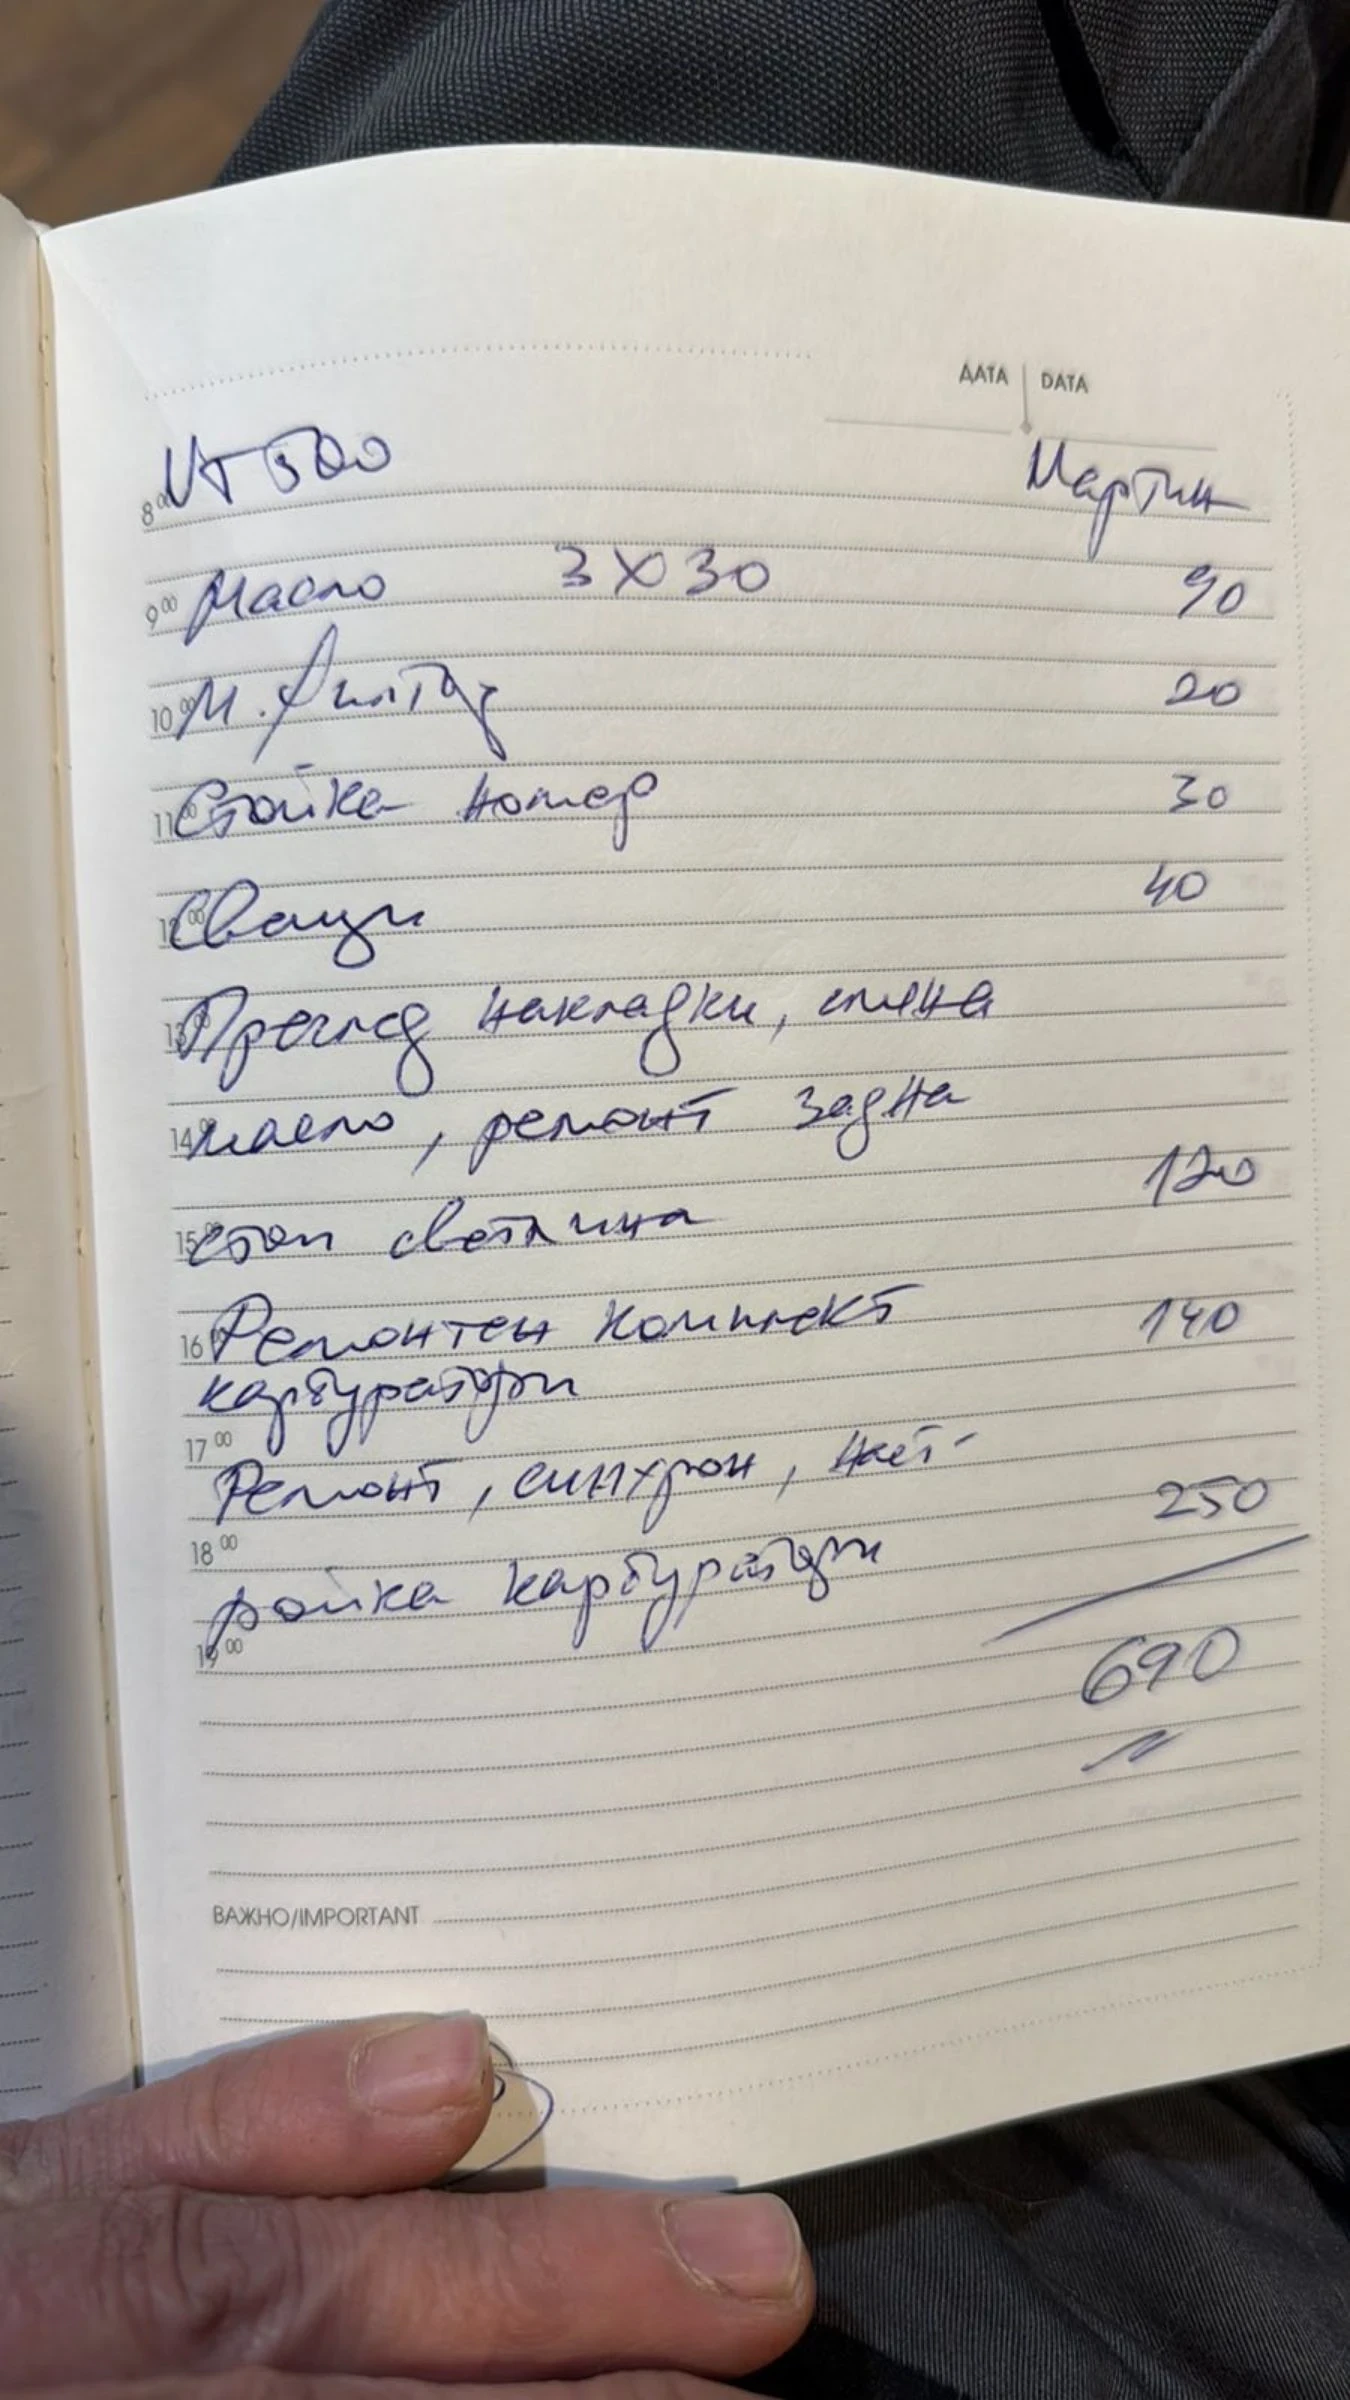 ДАТА | DATA
Мартин
8 00
Масло 3 X 30 90
9 00
М. филтър 20
10 00
Стойка номер 30
11 00
Свещи 40
12 00
Преглед накладки, смяна
13 00
масло, ремонт задна
14 00
стоп светлина 120
15 00
Ремонтен комплект 140
16 00
карбуратори
17 00
Ремонт, синхрон, наст-
18 00
ройка карбуратори 250
19 00
690
ВАЖНО/IMPORTANT